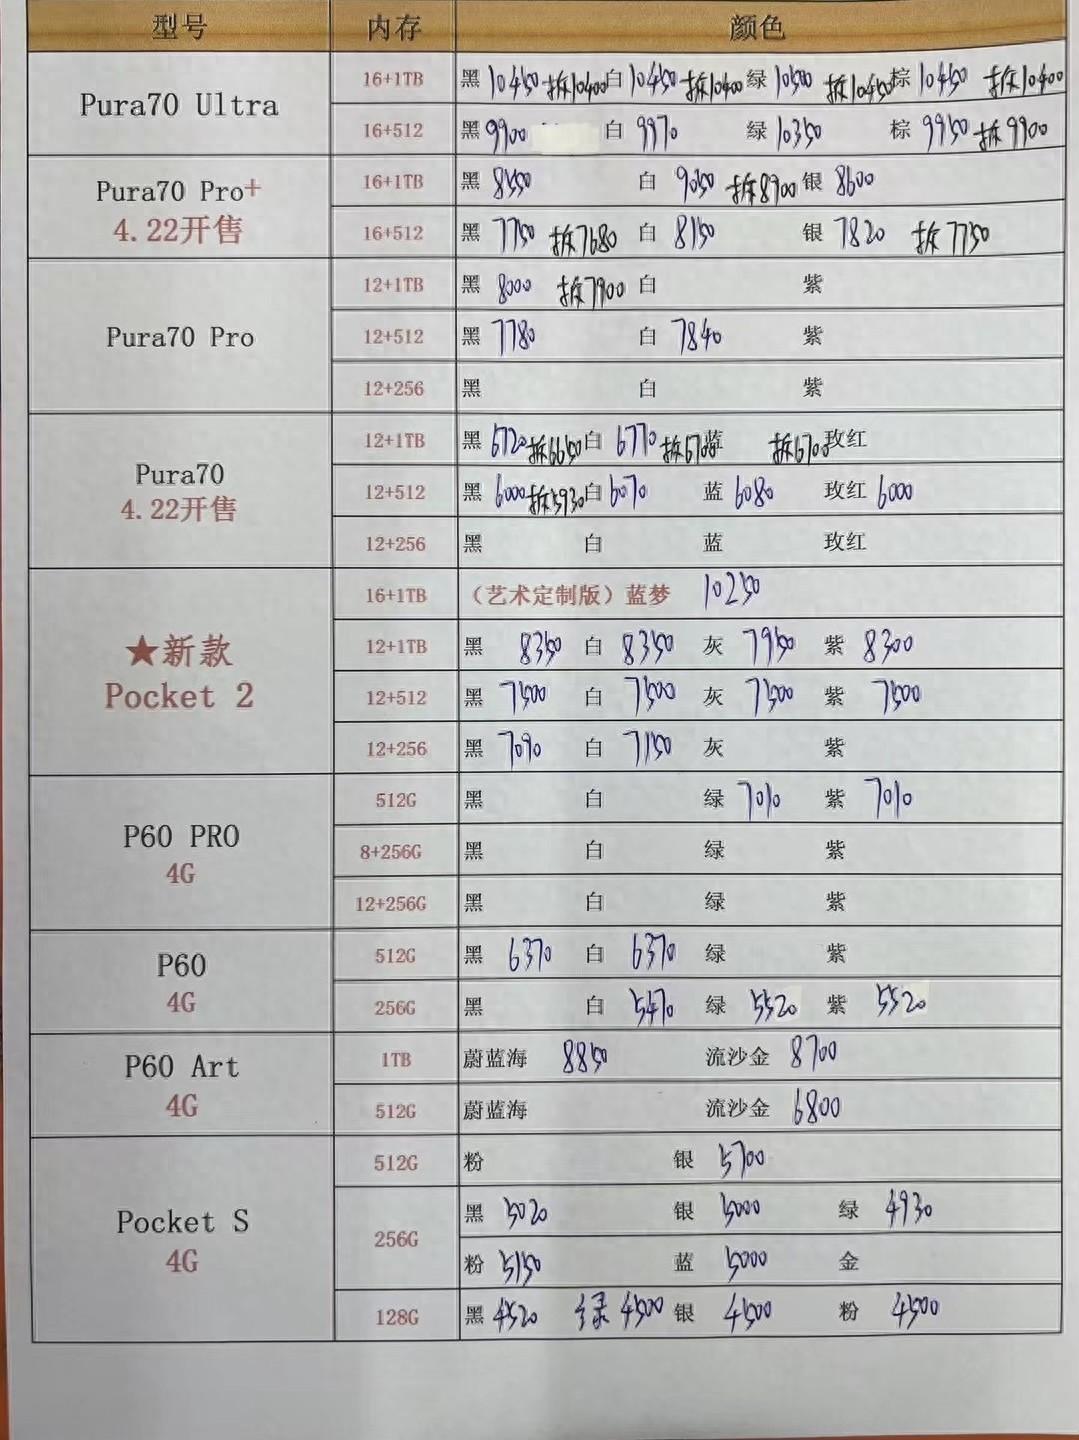 型号 内存 颜色
Pura70 Ultra
16+1TB 黑 10450 拆10400 白 10450 拆10400 绿 10500 拆10450 棕 10450 拆10400
16+512 黑 9900 白 9970 绿 10350 棕 9950 拆9900
Pura70 Pro+
4.22开售
16+1TB 黑 8550 白 9050 拆8900 银 8600
16+512 黑 7750 拆7680 白 8150 银 7820 拆7750
Pura70 Pro
12+1TB 黑 8000 拆7900 白 紫
12+512 黑 7780 白 7840 紫
12+256 黑 白 紫
Pura70
4.22开售
12+1TB 黑 6720 拆6650 白 6770 拆6700 蓝 拆6700 玫红
12+512 黑 6000 拆5930 白 6070 蓝 6080 玫红 6000
12+256 黑 白 蓝 玫红
★新款
Pocket 2
16+1TB （艺术定制版）蓝梦 10250
12+1TB 黑 8350 白 8350 灰 7950 紫 8300
12+512 黑 7500 白 7500 灰 7500 紫 7500
12+256 黑 7090 白 7150 灰 紫
P60 PRO
4G
512G 黑 白 绿 7010 紫 7010
8+256G 黑 白 绿 紫
12+256G 黑 白 绿 紫
P60
4G
512G 黑 6370 白 6370 绿 紫
256G 黑 白 5470 绿 5520 紫 5520
P60 Art
4G
1TB 蔚蓝海 8850 流沙金 8700
512G 蔚蓝海 流沙金 6800
Pocket S
4G
512G 粉 银 5700
256G 黑 5020 银 5000 绿 4930
粉 5150 蓝 5000 金
128G 黑 4520 绿 4500 银 4500 粉 4500